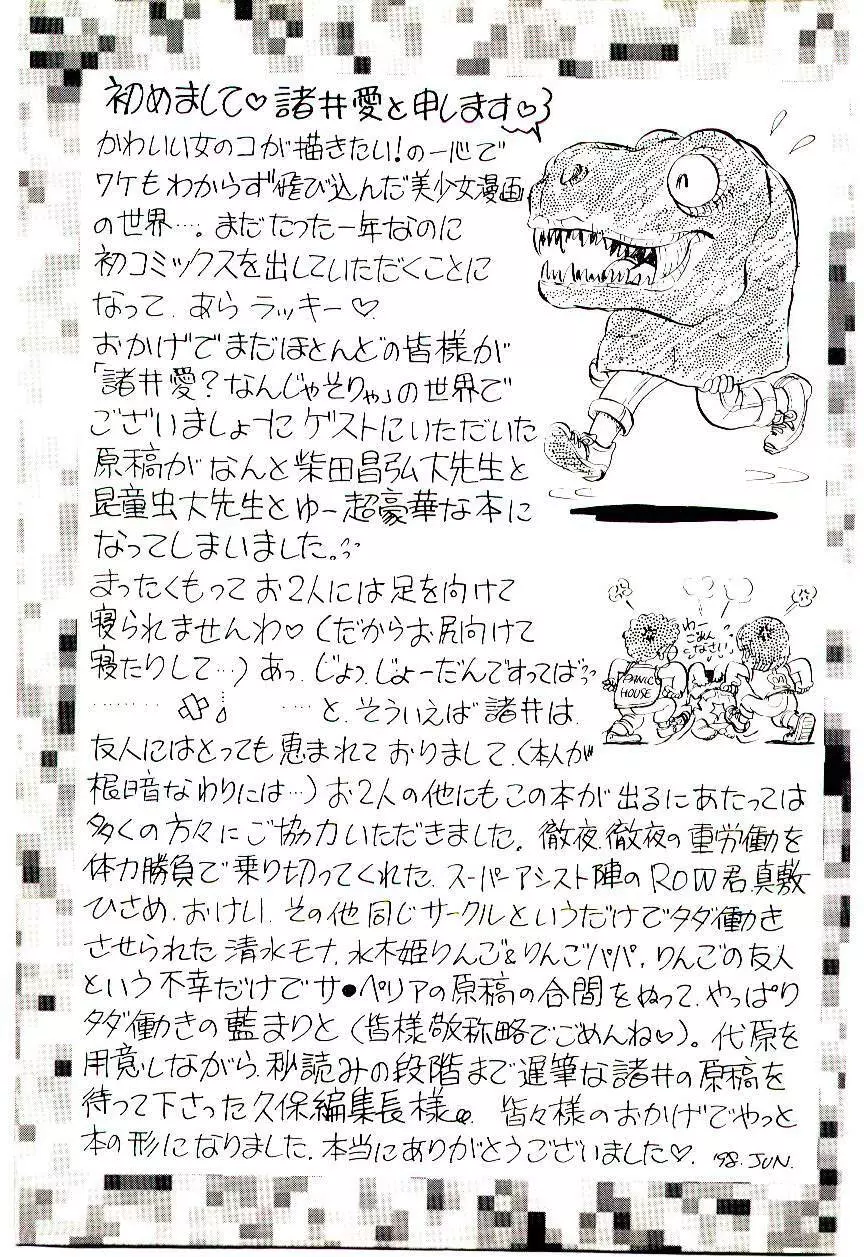 初めまして♡諸井愛と申します♡
かわいい女のコが描きたい!の一心で
ワケもわからず飛び込んだ美少女漫画
の世界…。まだたった一年なのに
初コミックスを出していただくことに
なって、あらラッキー♡
おかげでまだほとんどの皆様が
「諸井愛?なんじゃそりゃ」の世界で
ございましょーにゲストにいただいた
原稿がなんと柴田昌弘大先生と
昆童虫大先生とゆー超豪華な本に
なってしまいました。
まったくもってお2人には足を向けて
寝られませんわ♡(だからお尻向けて
寝たりして…)あっ、じょっ、じょーだんですってばっ
わー
ごめん
なさい
PANIC
HOUSE
………と、そういえば諸井は、
友人にはとっても恵まれておりまして、(本人が
根暗なわりには…)お2人の他にもこの本が出るにあたっては
多くの方々にご協力いただきました。徹夜、徹夜の重労働を
体力勝負で乗り切ってくれた、スーパーアシスト陣のROW君、真敷
ひさめ、おけい、その他同じサークルというだけでタダ働き
させられた清水モナ、水木姫りんご&りんごパパ、りんごの友人
という不幸だけでサ●ペリアの原稿の合間をぬって、やっぱり
タダ働きの藍まりと(皆様敬称略でごめんね♡)。代原を
用意しながら、秒読みの段階まで遅筆な諸井の原稿を
待って下さった久保編集長様。皆々様のおかげでやっと
本の形になりました。本当にありがとうございました♡ '98.JUN.